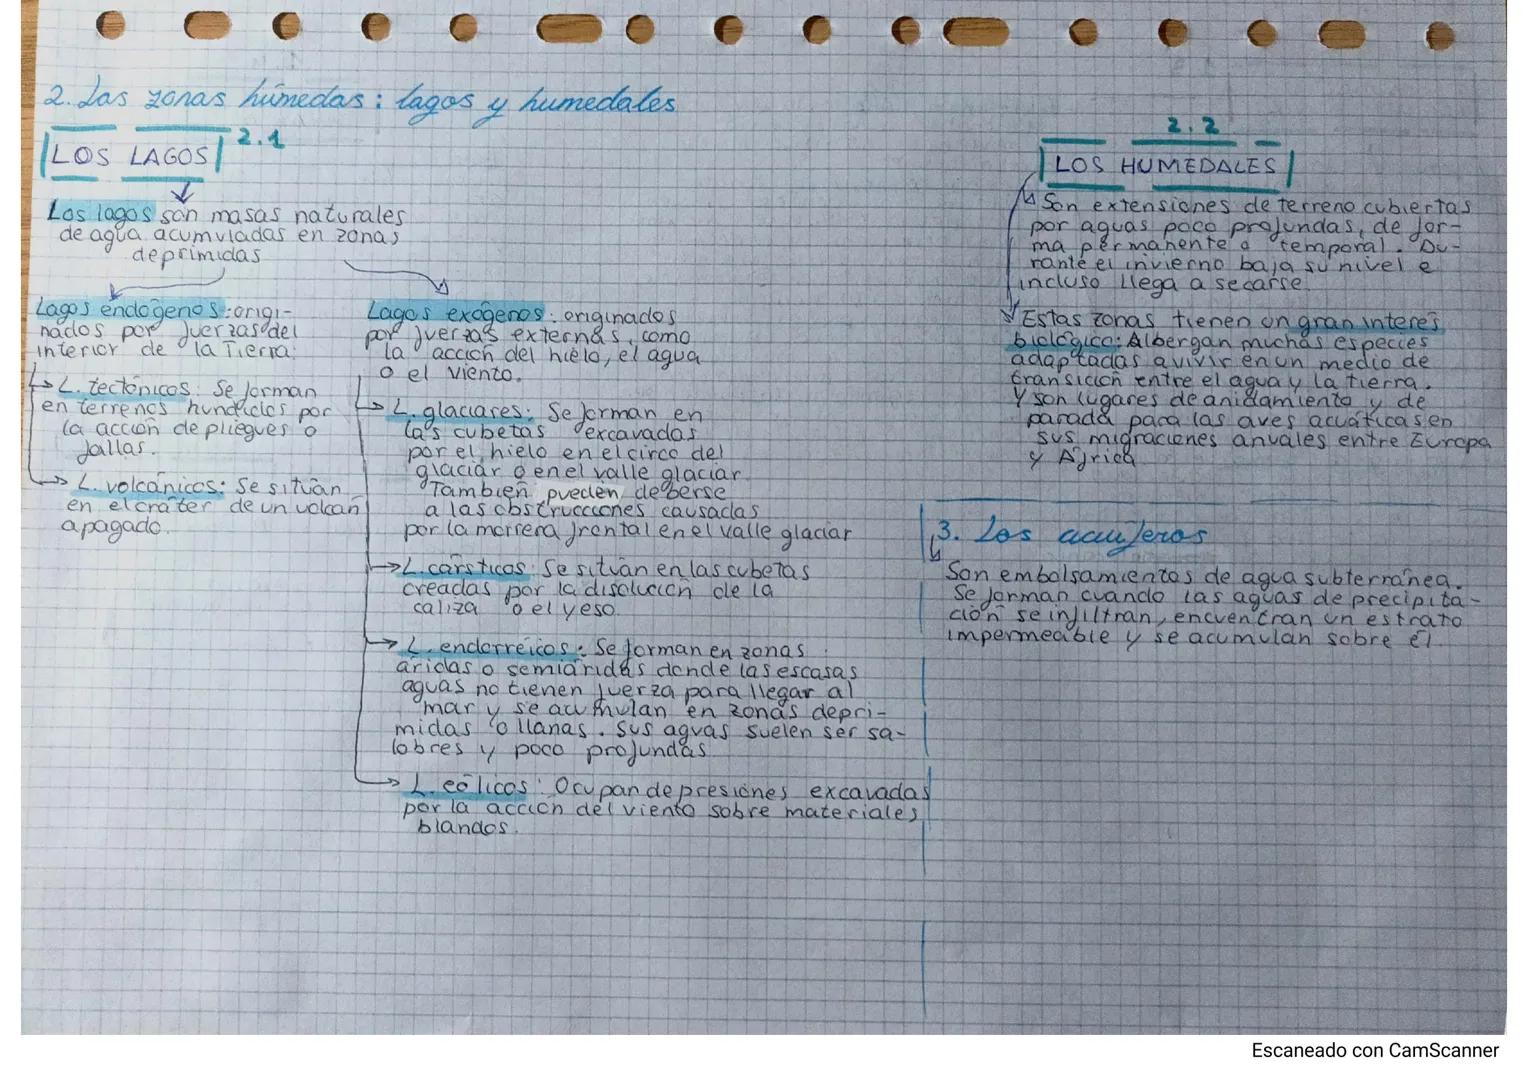 2. Las zonas húmedas: lagos y humedales
2.1
LOS LAGOS
Los lagos son masas naturales
de agua acumuladas en zonas
deprimidas
Lagos endógenos: origi-
nados por fuerzas del
interior de la Tierra:
L. tectónicos: Se forman
en terrenos hundidos por
la acción de pliegues o
fallas.
L. volcánicos: Se sitúan
en el cráter de un volcán
apagado.
Lagos exógenos: originados
por fuerzas externas, como
la acción del hielo, el agua
o el viento.
L. glaciares: Se forman en
las cubetas excavadas
por el hielo en el circo del
glaciar o en el valle glaciar
También pueden deberse
a las obstrucciones causadas
por la morrena frontal en el valle glaciar
L. cársticos: Se sitúan en las cubetas
creadas por la disolución de la
caliza o el yeso.
L. endorreicos: Se forman en zonas
áridas o semiáridas donde las escasas
aguas no tienen fuerza para llegar al
mar y se acumulan en zonas depri-
midas o llanas. Sus aguas suelen ser sa-
lobres y poco profundas
L. eólicos: Ocupan depresiones excavadas
por la acción del viento sobre materiales
blandos.
2.2
LOS HUMEDALES
Son extensiones de terreno cubiertas
por aguas poco profundas, de for-
ma permanente o temporal. Du-
rante el invierno baja su nivel e
incluso llega a secarse.
Estas zonas tienen un gran interés
biológico: Albergan muchas especies
adaptadas a vivir en un medio de
transición entre el agua y la tierra.
Y son lugares de anidamiento y de
parada para las aves acuáticas en
sus migraciones anuales entre Europa
y África
3. Los acuíferos
Son embolsamientos de agua subterránea.
Se forman cuando las aguas de precipita-
ción se infiltran, encuentran un estrato
impermeable y se acumulan sobre él.
Escaneado con CamScanner